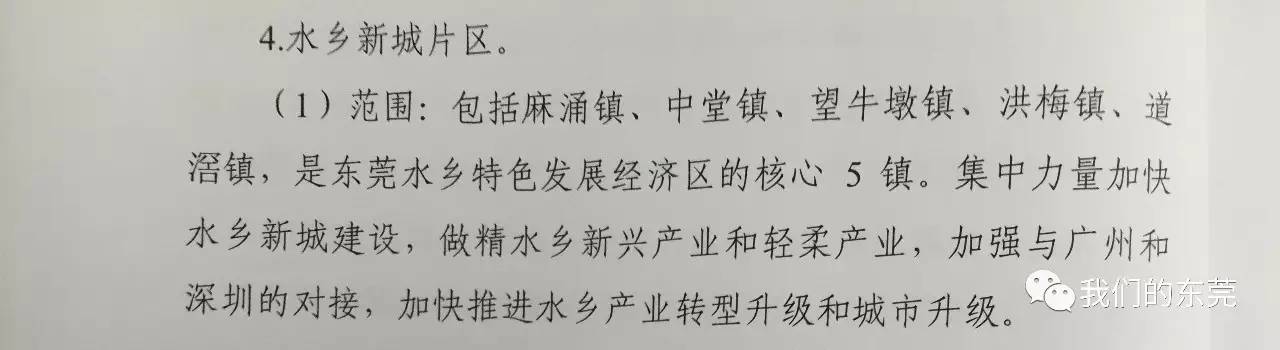 4.水乡新城片区。
（1）范围：包括麻涌镇、中堂镇、望牛墩镇、洪梅镇、道
滘镇，是东莞水乡特色发展经济区的核心 5 镇。集中力量加快
水乡新城建设，做精水乡新兴产业和轻柔产业，加强与广州和
深圳的对接，加快推进水乡产业转型升级和城市升级。
我们的东莞